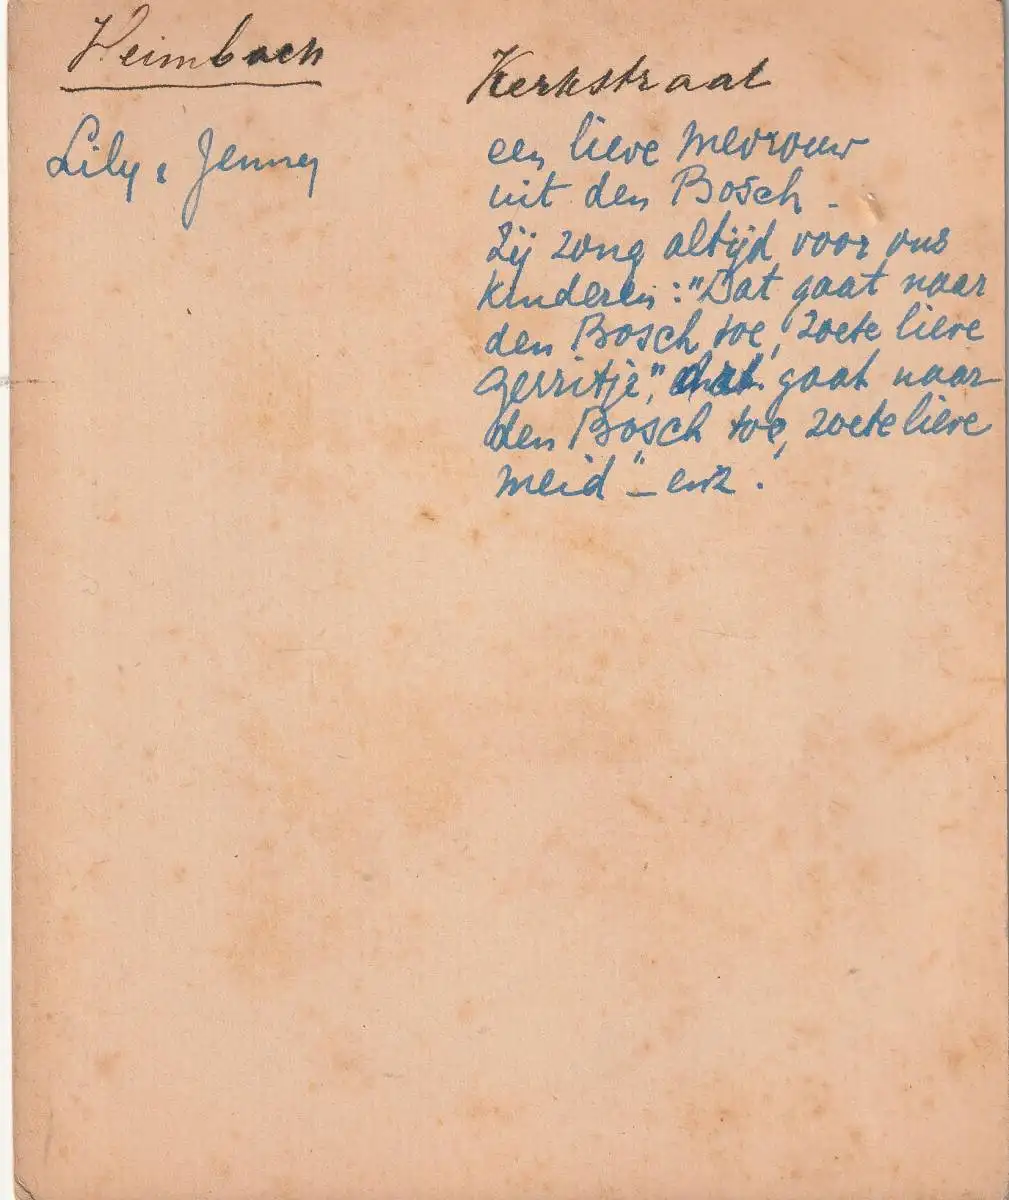 Heimbach
Lily & Jenney
Kerkstraat
een lieve mevrouw
uit den Bosch -
Zij zong altijd voor ons
kinderen: "Dat gaat naar
den Bosch toe, zoete lieve
Gerritje", dat gaat naar
den Bosch toe, zoete lieve
meid" - enz.